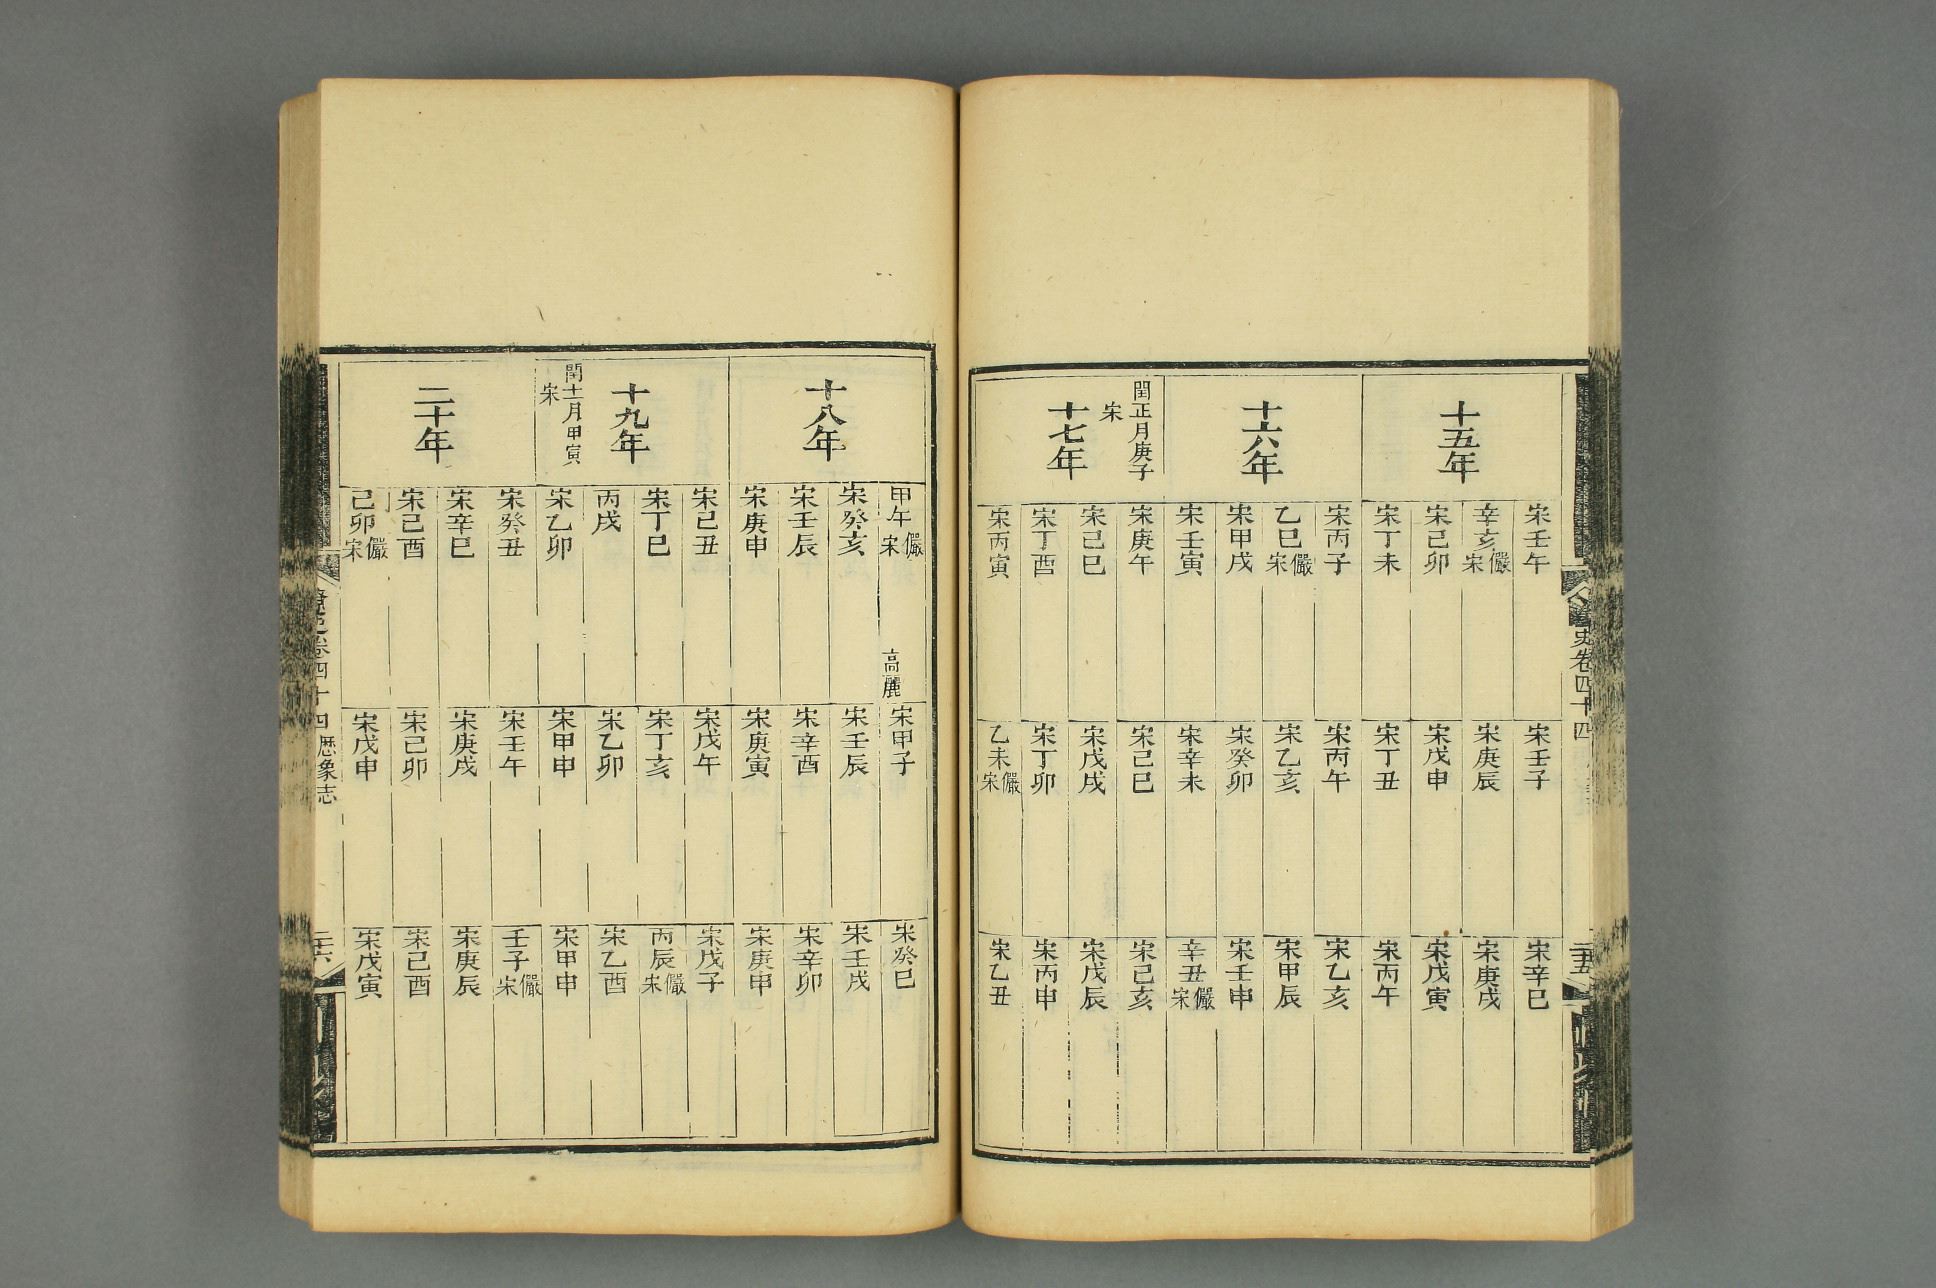 史卷四十四
二十五
十五年
宋壬午
宋壬子
宋辛巳
辛亥儼宋
宋庚辰
宋庚戌
宋己卯
宋戊申
宋戊寅
宋丁未
宋丁丑
宋丙午
十六年
宋丙子
宋丙午
宋乙亥
乙巳儼宋
宋乙亥
宋甲辰
宋甲戌
宋癸卯
宋壬申
宋壬寅
宋辛未
辛丑儼宋
閏正月庚子
宋
十七年
宋庚午
宋己巳
宋己亥
宋己巳
宋戊戌
宋戊辰
宋丁酉
宋丁卯
宋丙申
宋丙寅
乙未儼宋
宋乙丑
十八年
甲午儼宋
高麗
宋甲子
宋癸巳
宋癸亥
宋壬辰
宋壬戌
宋壬辰
宋辛酉
宋辛卯
宋庚申
宋庚寅
宋庚申
十九年
閏十一月甲寅
宋
宋己丑
宋戊午
宋戊子
宋丁巳
宋丁亥
丙辰儼宋
丙戌
宋乙卯
宋乙酉
宋乙卯
宋甲申
宋甲申
二十年
宋癸丑
宋壬午
壬子儼宋
宋辛巳
宋庚戌
宋庚辰
宋己酉
宋己卯
宋己酉
己卯儼宋
宋戊申
宋戊寅
遼史卷四十四 歷象志
二十六